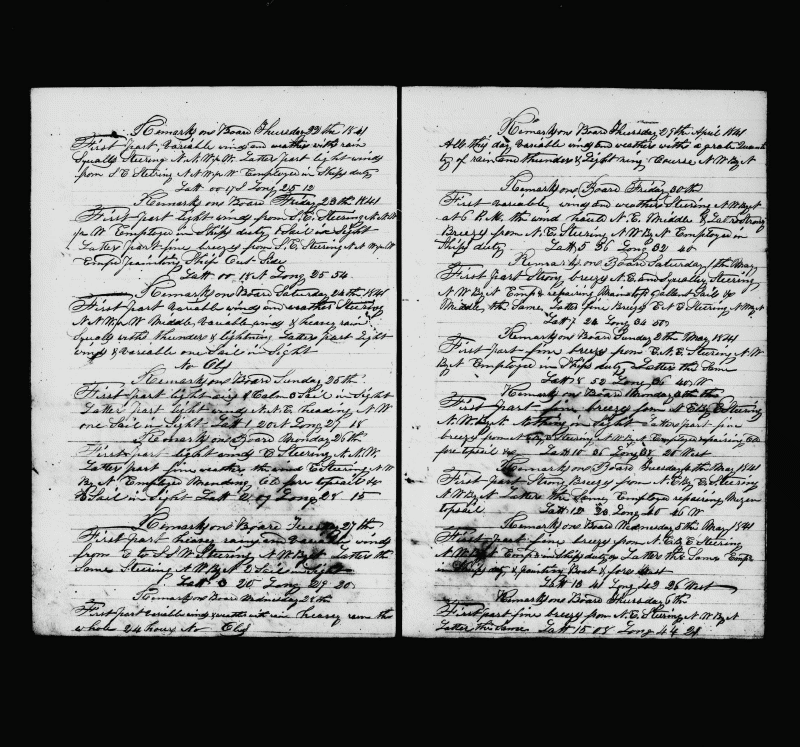 Remarks on Board Thursday 22th 1841
First part variable winds and weather with rain
Squally Steering N.N.W. Latter part light winds
from S E Steering N N W Employed in Ships duty
Latt 00 17 S Long 25 12
Remarks on Board Friday 23th 1841
First part light winds from S.E. Steering N.N.W
Employed in Ships duty Sail in Sight
Latter part fine breezes from S.E. Steering
Empd painting Ship Out Side
Latt 00 18 N Long 25 54
Remarks on Board Saturday 24th 1841
First part Variable winds and weather Steering
N.N.W Middle variable winds & heavey rain
Squalls with thunder & lightning Latter part light
winds & variable one Sail in Sight
No Obs
Remarks on Board Sunday 25th
First part light airs & Calm Sail in Sight
Latter part light winds N.N.E. heading N.W
one Sail in Sight Latt 1 20 Long 27 18
Remarks on Board Monday 26th
First part light winds E Steering N.N.W.
Latter part fine weather wind E Steering N W
By N Employed Mending fore topsail &c
Sail in Sight Latt Long 28 15
Remarks on Board Tuesday 27th
First part heavey rain and Variable winds
from E to S S W Steering N.W.By N Latter the
Same Steering N.W.By N Sail in Sight
Latt 3 20 Long 29 20
Remarks on Board Wednesday 28th
First part variable winds & weather with heavey rain the
whole 24 hours No Obs
Remarks on Board Thursday 29th April 1841
All this day Variable winds and weather with a grate Quanti
ty of rain and thunder & Lightning Course N W By N
Remarks on Board Friday 30th
First variable winds and weather Steering N W By N
at 6 P.M. the wind hauld N.E. Middle & Latter Strong
Breezes from N.E Steering N W By N Employed in
Ships duty Latt 5 36 Long 32 40
Remarks on Board Saturday 1th May
First part Strong breezes N.E. and Squally Steering
N.W By N Empd repairing Maintop Gallant Sail &c
Middle the Same Latter fine Breezes E N E Steering N W By N
Latt 7 24 Long 34 50
Remarks on Board Sunday 2th May 1841
First part fine breezes from E.N.E. Steering N.W
By N Employed in Ships duty Latter the Same
Latt 8 52 Long 36 40 W
Remarks on Board Monday
First part fine breezes from N.E By E Steering
N.W.By N Nothing in Sight Latter part fine
breezes from N E By E Steering N W By N Employed repairing
fore topsail &c Latt 10 Long 38 28 West
Remarks on Board Tuesday 4th May 1841
First part Strong Breezes from N.E By E Steering
N W By N Latter the Same Employed repairing Mizen
topsail Latt 12 Long 40 26 W
Remarks on Board Wednesday 5th May 1841
First part fine breezes from N.E. By E Steering
N W By N Empd in Ships duty Latter the Same Empd
in Ships duty & painting Boat & fore Mast
Latt 13 41 Long 42 26 West
Remarks on Board Thursday 6th
First part fine breezes from N.E. Steering N W By N
Latter the Same Latt 15 08 Long 44 28